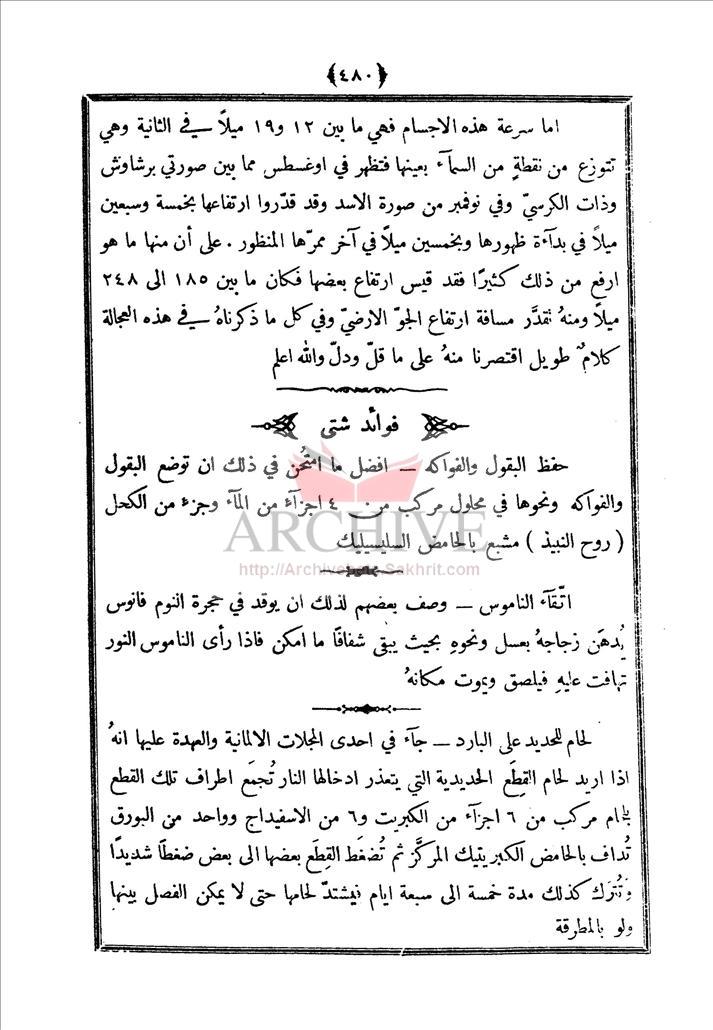 ﴿٤٨٠﴾
اما سرعة هذه الاجسام فهي ما بين ١٢ و١٩ ميلاً في الثانية وهي
تتوزع من نقطةٍ من السمآء بعينها فتظهر في اوغسطس مما بين صورتي برشاوش
وذات الكرسيّ وفي نوفمبر من صورة الاسد وقد قدّروا ارتفاعها بخمسة وسبعين
ميلاً في بدآءة ظهورها وبخمسين ميلاً في آخر ممرّها المنظور . على أن منها ما هو
ارفع من ذلك كثيرًا فقد قيس ارتفاع بعضها فكان ما بين ١٨٥ الى ٢٤٨
ميلاً ومنهُ نقدَّر مسافة ارتفاع الجوّ الارضيّ وفي كل ما ذكرناهُ في هذه العجالة
كلامٌ طويل اقتصرنا منهُ على ما قلّ ودلّ والله اعلم
فوائد شتى
حفظ البقول والفواكه — افضل ما امتُحن في ذلك ان توضع البقول
والفواكه ونحوها في محلول مركب من ٤ اجزآء من المآء وجزء من الكحل
( روح النبيذ ) مشبع بالحامض السليسيليك
ARCHIVE
http://Archivebeta.Sakhrit.com
اتّقآء الناموس — وصف بعضهم لذلك ان يوقد في حجرة النوم فانوس
يُدهَن زجاجهُ بعسل ونحوهِ بحيث يبقى شفافًا ما امكن فاذا رأى الناموس النور
تهافت عليهِ فيلصق ويموت مكانهُ
لحام للحديد على البارد — جآء في احدى المجلات الالمانية والعهدة عليها انهُ
اذا اريد لحام القِطَع الحديدية التي يتعذر ادخالها النار تُجمَع اطراف تلك القطع
بلحام مركب من ٦ اجزآء من الكبريت و٦ من الاسفيداج وواحد من البورق
تُداف بالحامض الكبريتيك المركَّز ثم تُضغَط القِطَع بعضها الى بعض ضغطًا شديدًا
وتُترَك كذلك مدة خمسة الى سبعة ايام فيشتدّ لحامها حتى لا يمكن الفصل بينها
ولو بالمطرقة